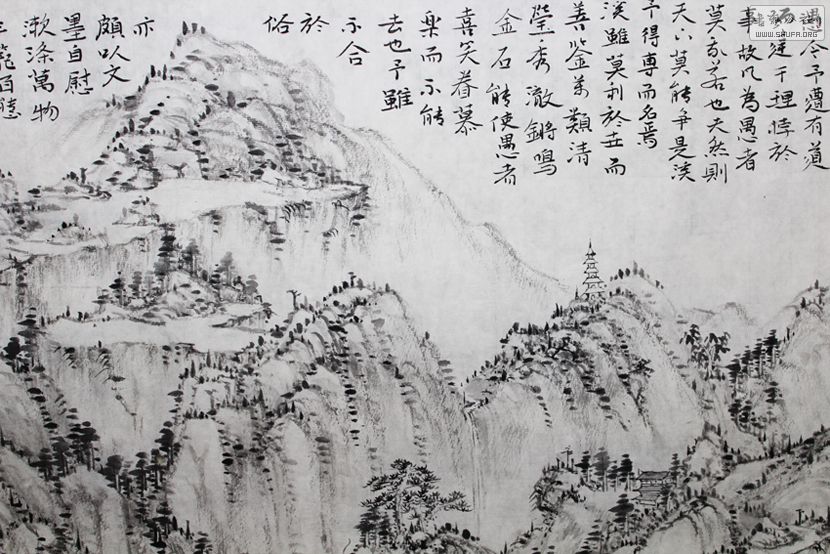 愚今予遭有道
而違于理悖於
事故凡為愚者
莫我若也夫然則
天下莫能爭是溪
予得專而名焉
溪雖莫利於世而
善鑒萬類清
瑩秀澈鏘鳴
金石能使愚者
喜笑眷慕
樂而不能
去也予雖
不合
於
俗
亦
頗以文
墨自慰
漱滌萬物
籠百態
www.SHUFA.ORG